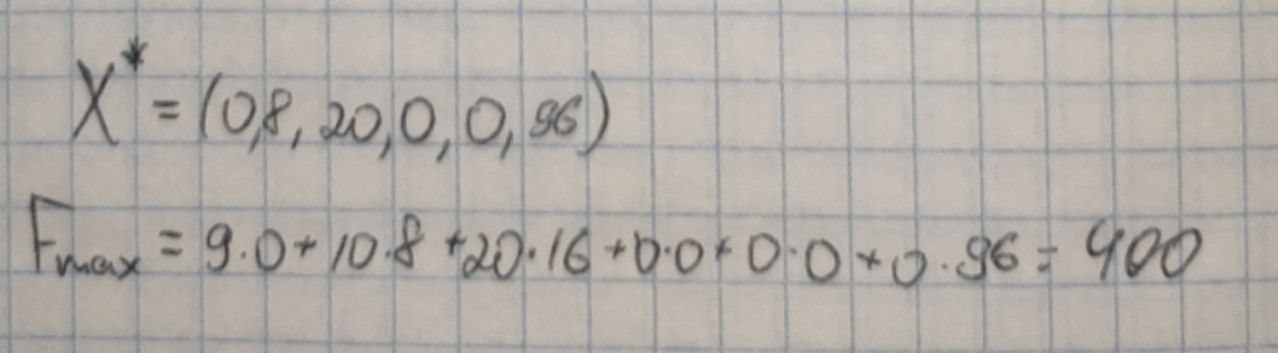 X* = (0,8, 20, 0, 0, 96)
Fmax = 9·0 + 10·8 + 20·16 + 0·0 + 0·0 + 0·96 = 400